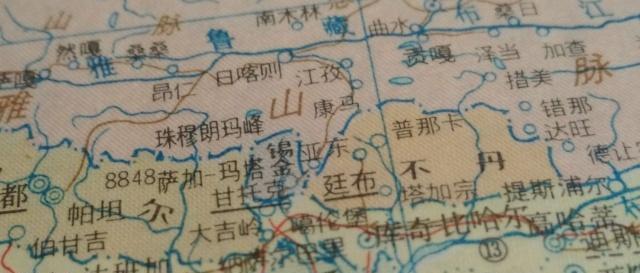 山 脉 南木林
然嘎 桑桑 鲁 藏 曲水 布 桑日 江
雅 日喀则 江孜 贡嘎 泽当 加查
昂仁 措美 脉
雅 山 康马 错那
珠穆朗玛峰 普那卡 达旺
锡 亚东 不 丹 德让宗
8848 萨加-玛塔 金
都 甘托克 廷布 塔加宗 提斯浦尔
帕坦 尔 噶伦堡 库奇比哈尔 高哈蒂
伯甘吉 大吉岭
⑬